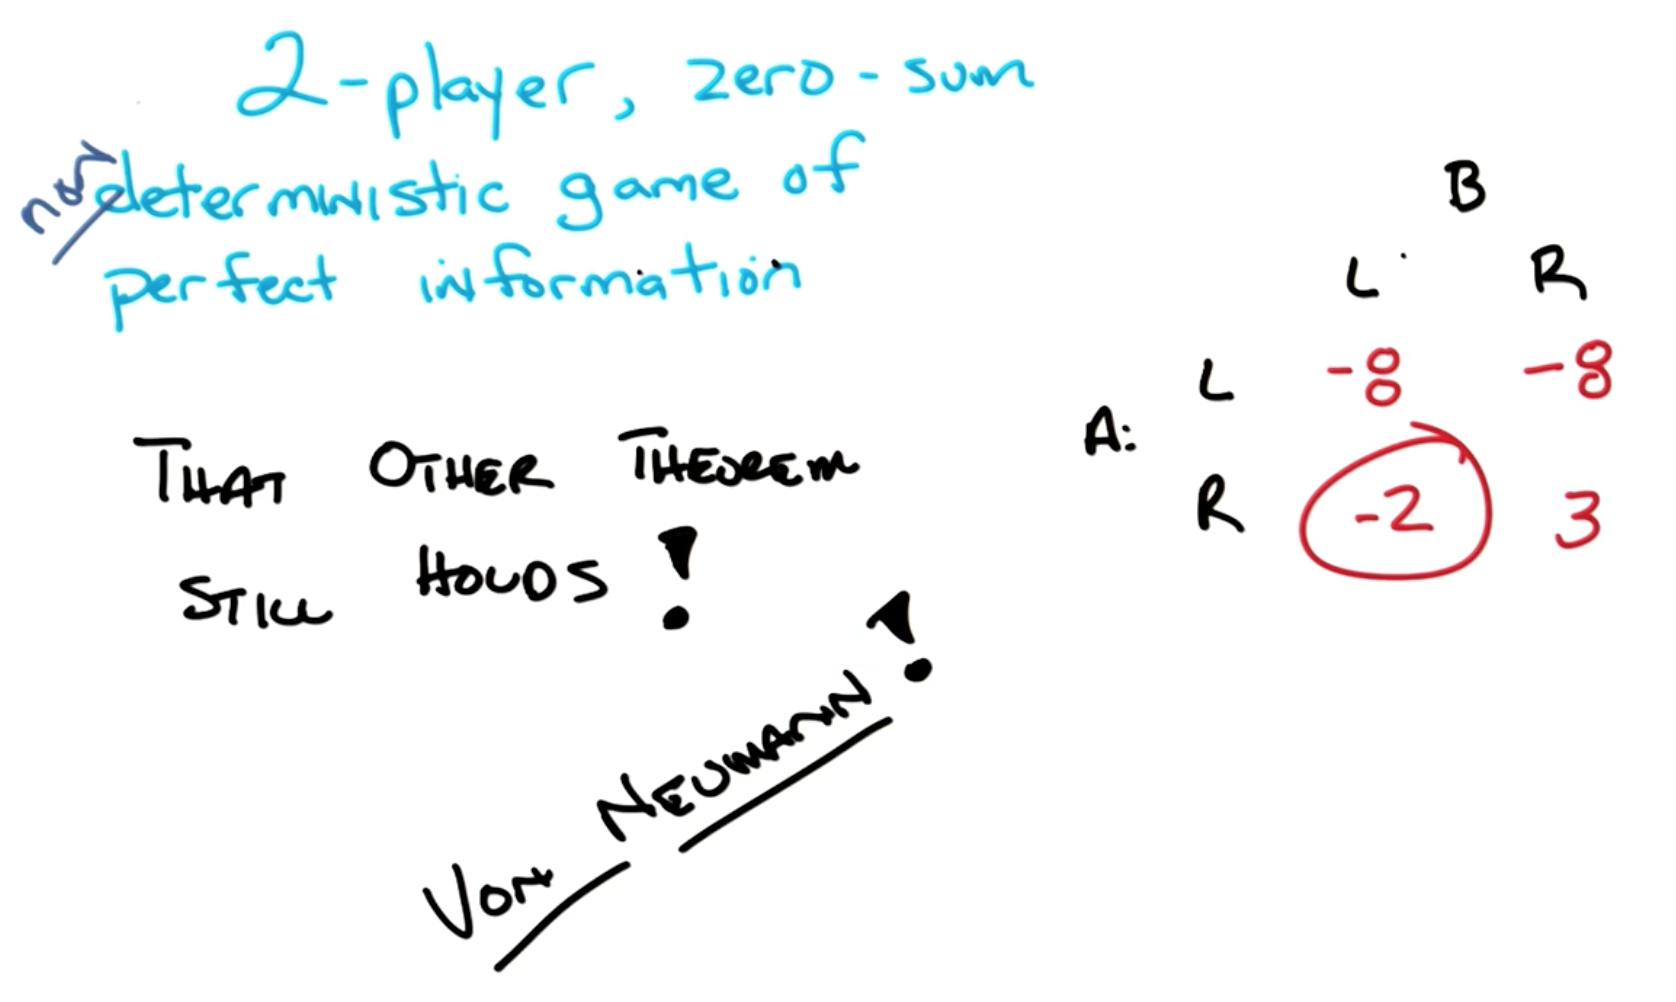 2-player, zero-sum
non
deterministic game of
perfect information
THAT OTHER THEOREM
STILL HOLDS!
VON NEUMANN!
B
L R
A:
L -8 -8
R -2 3